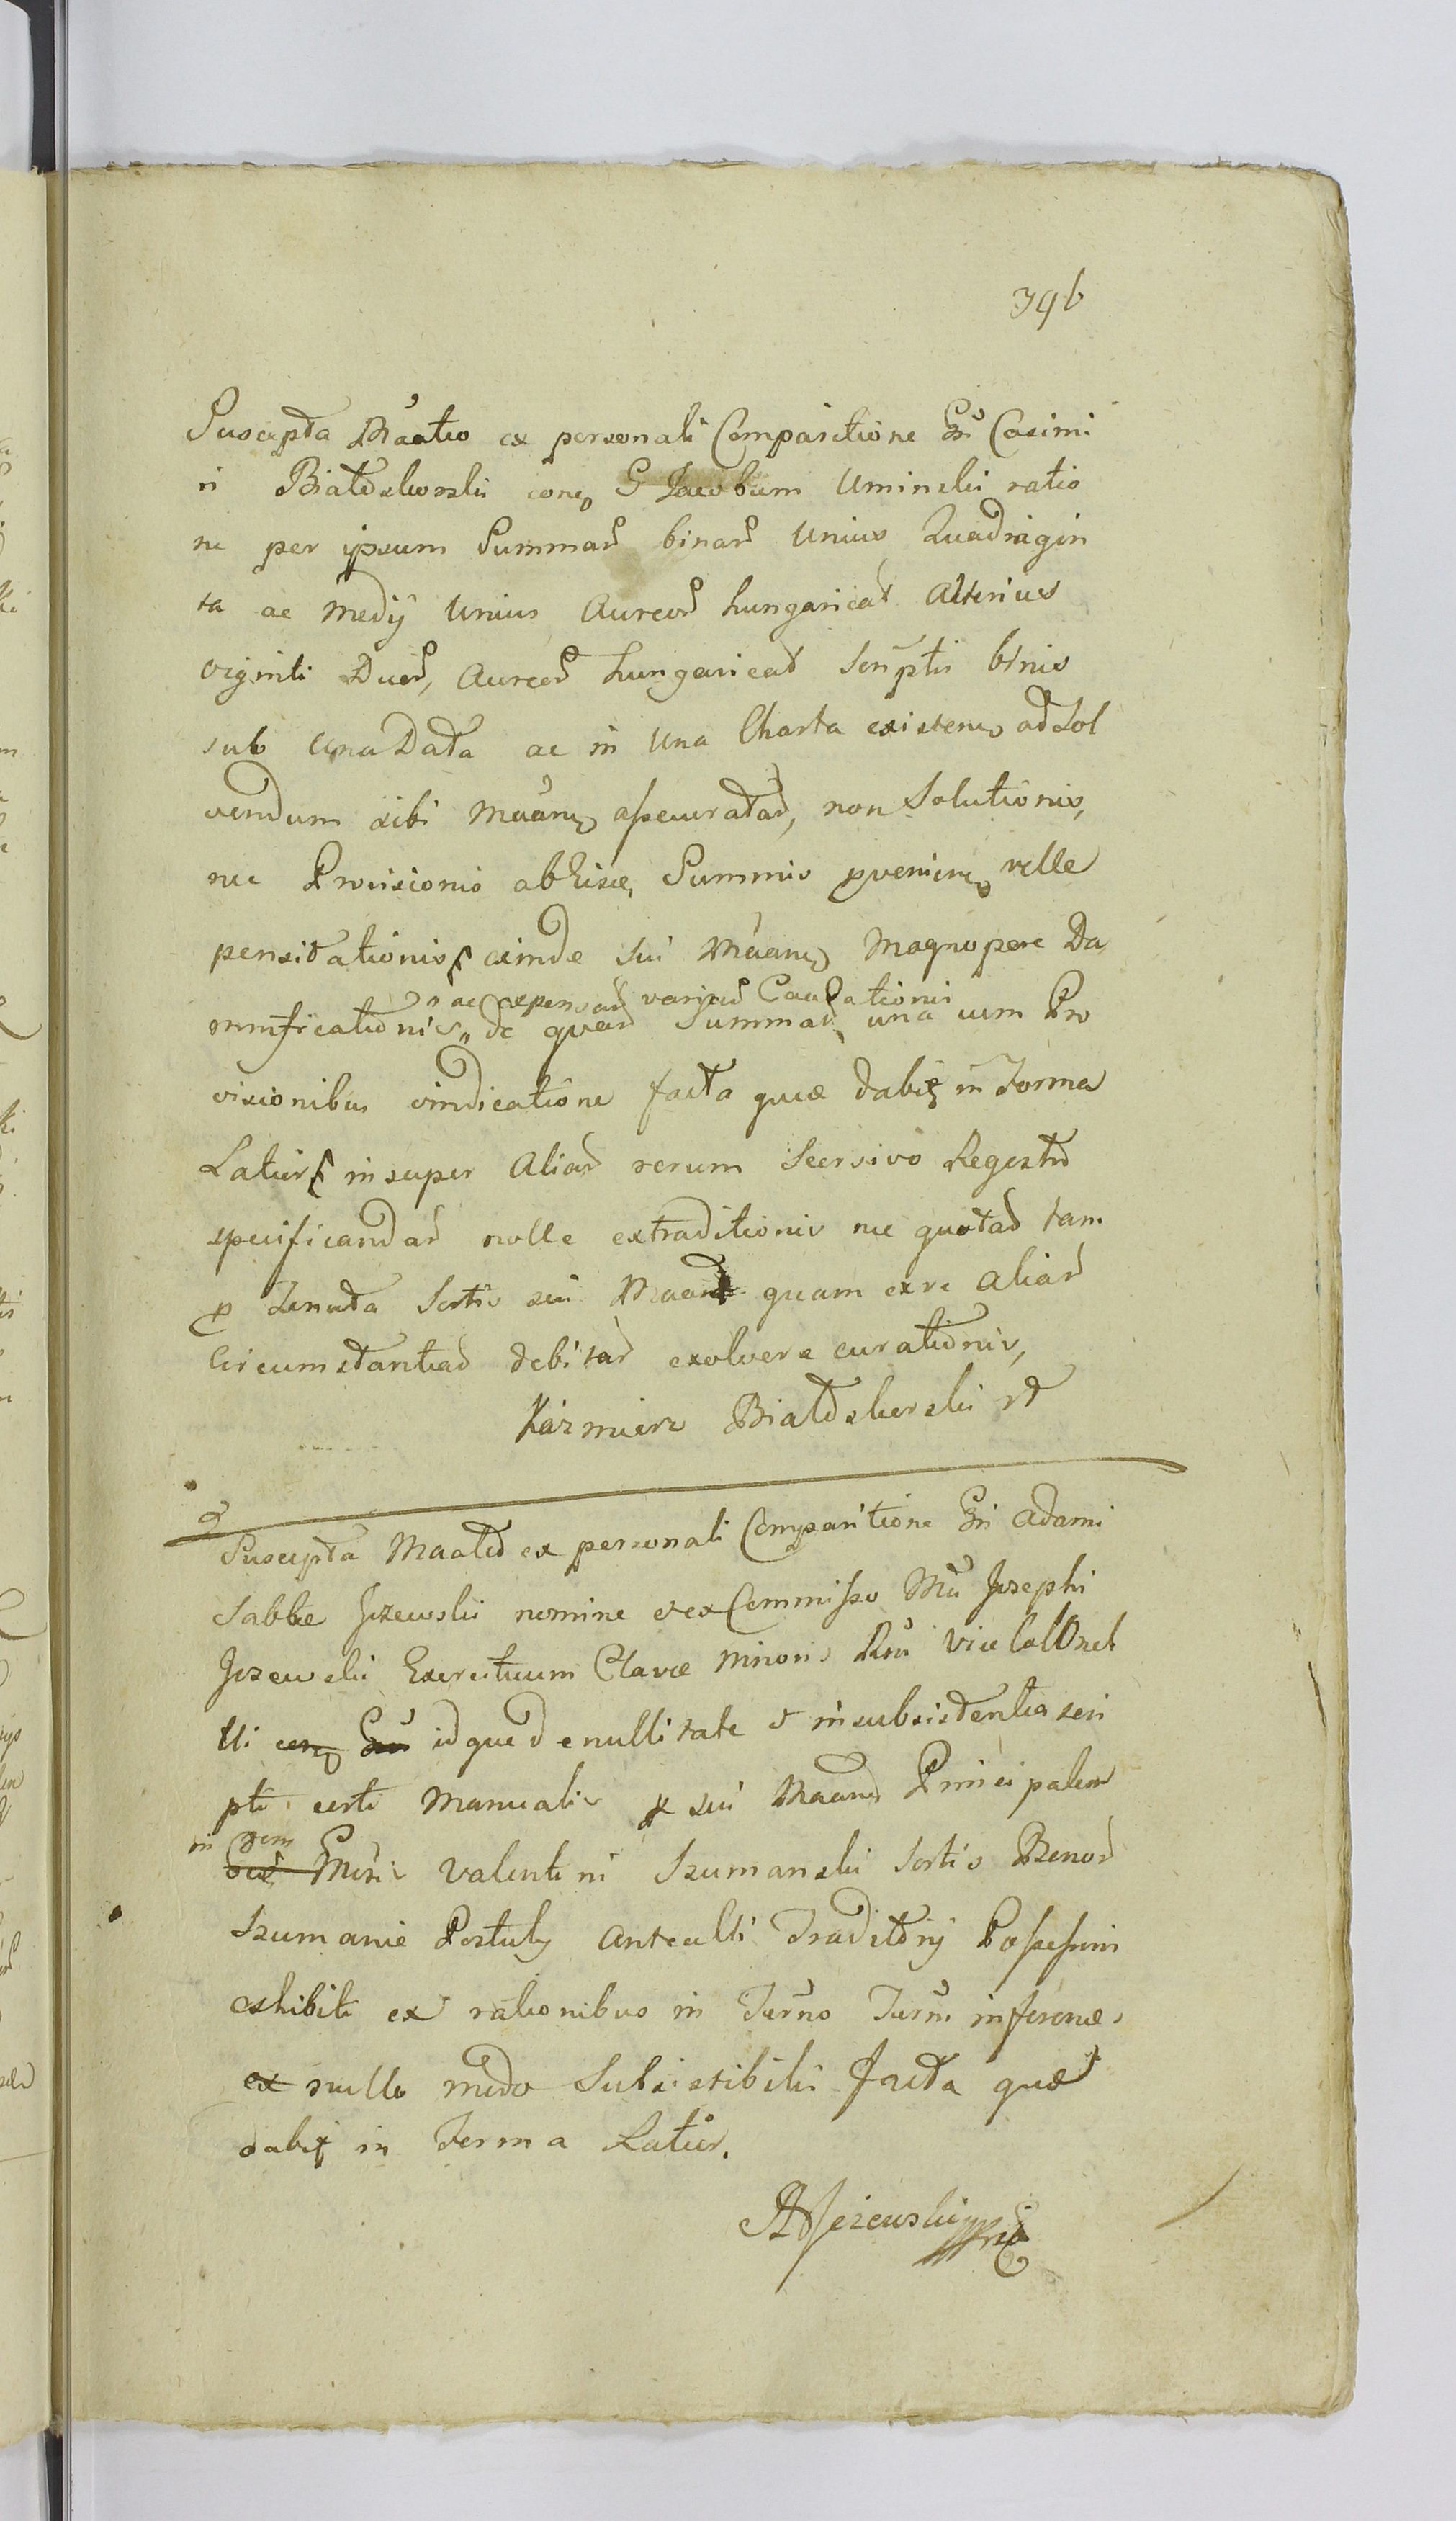 396
Suscepta Maatio ex personali Comparitione Gri Casimi
ri Białoskorski conq G Jacobum Uminski ratio
ne per ipsum Summar binar Unius Quadragin
ta ac Medij Unius Aureor hungarical Alterius
viginti Duor, Aureor hungarical scriptis binis
sub Una Data ac in Una Charta existenq ad Sol
vendum sibi Maanq assecuratar, non Solutionis,
nec Provisionis ab hisce Summis pvenienq velle
pensitationis exinde sui Maanq Magnopere Da
s ac expensar variar Causationis
mnificationis, de quar Summar, una cum Pro
visionibus vindicatione facta quæ dabit in Forma
Latior insuper Aliar rerum Seorsivo Regestro
specificandar nolle extraditionis nec quotar tam
p Tenuta Sortis sui Maan quam ex re aliar
Circumstantiar debitar exolvere curationis,
Kázmierz Białoskorski
Suscepta Maatio ex personali Comparitione Gri Adami
Sabbe Jezewski nomine et ex Commisso Mci Josephi
Jezewski Exercituum Clavæ Minoris Rni Vice Colonel
li conq idque de nullitate & insubsistentia scri
pti certi Manualis p sui Maand Principalem
in rem
Valentini Szumanski Sortis Bonor
Szumanie Pustuly anteacti Traditorij Possessori
exhibiti ex rationibus in Termo Turni inferenæ,
ex nullo modo Subsistibilis facta quæ
dabit in Forma Latior.
A Jezewski mp